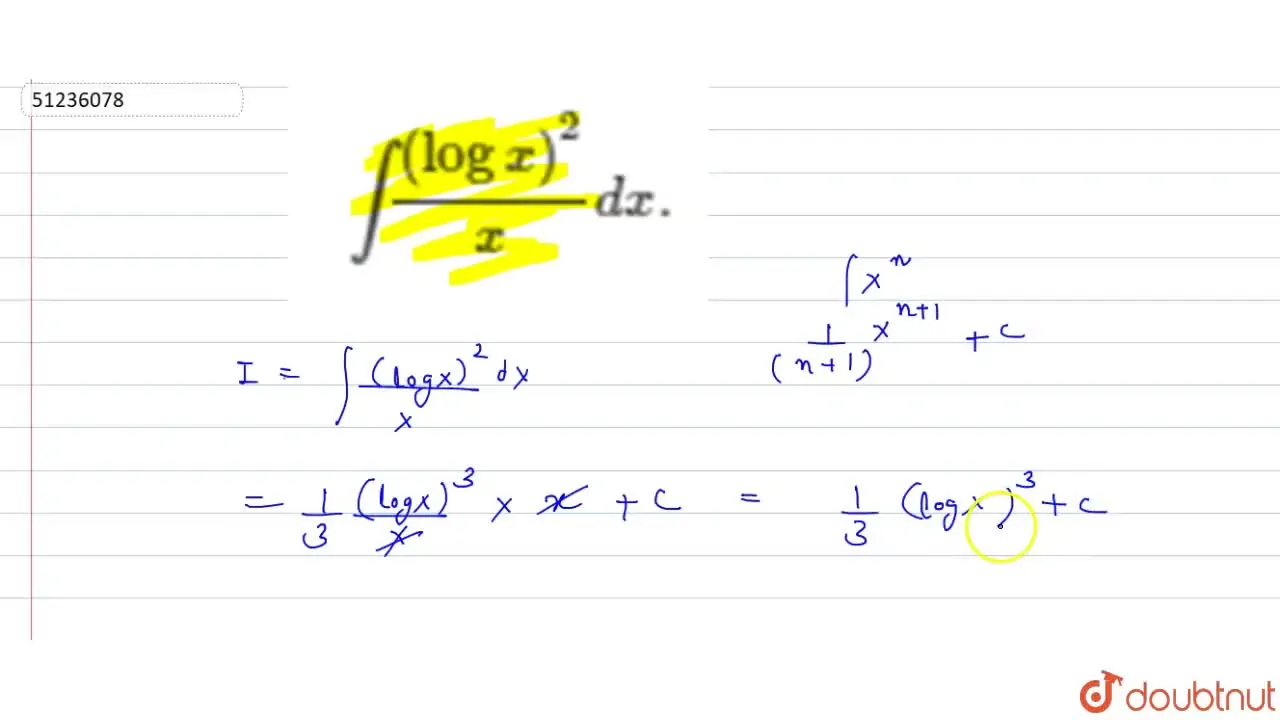 51236078
∫ (log x)² / x dx.
∫ xⁿ
1/(n+1) xⁿ⁺¹ + c
I = ∫ (logx)² / x dx
= 1/3 (logx)³ / x × x + c = 1/3 (logx)³ + c
doubtnut